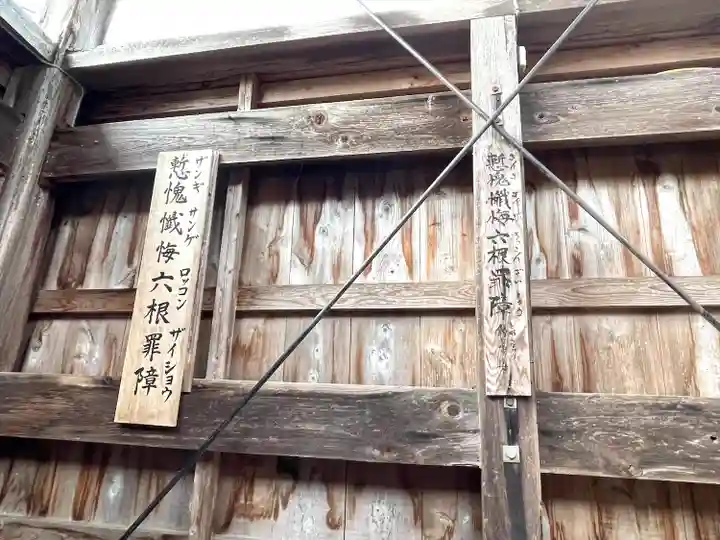 慙愧懺悔六根罪障
ザンギ サンゲ ロッコン ザイショウ
慙愧懺悔六根罪障